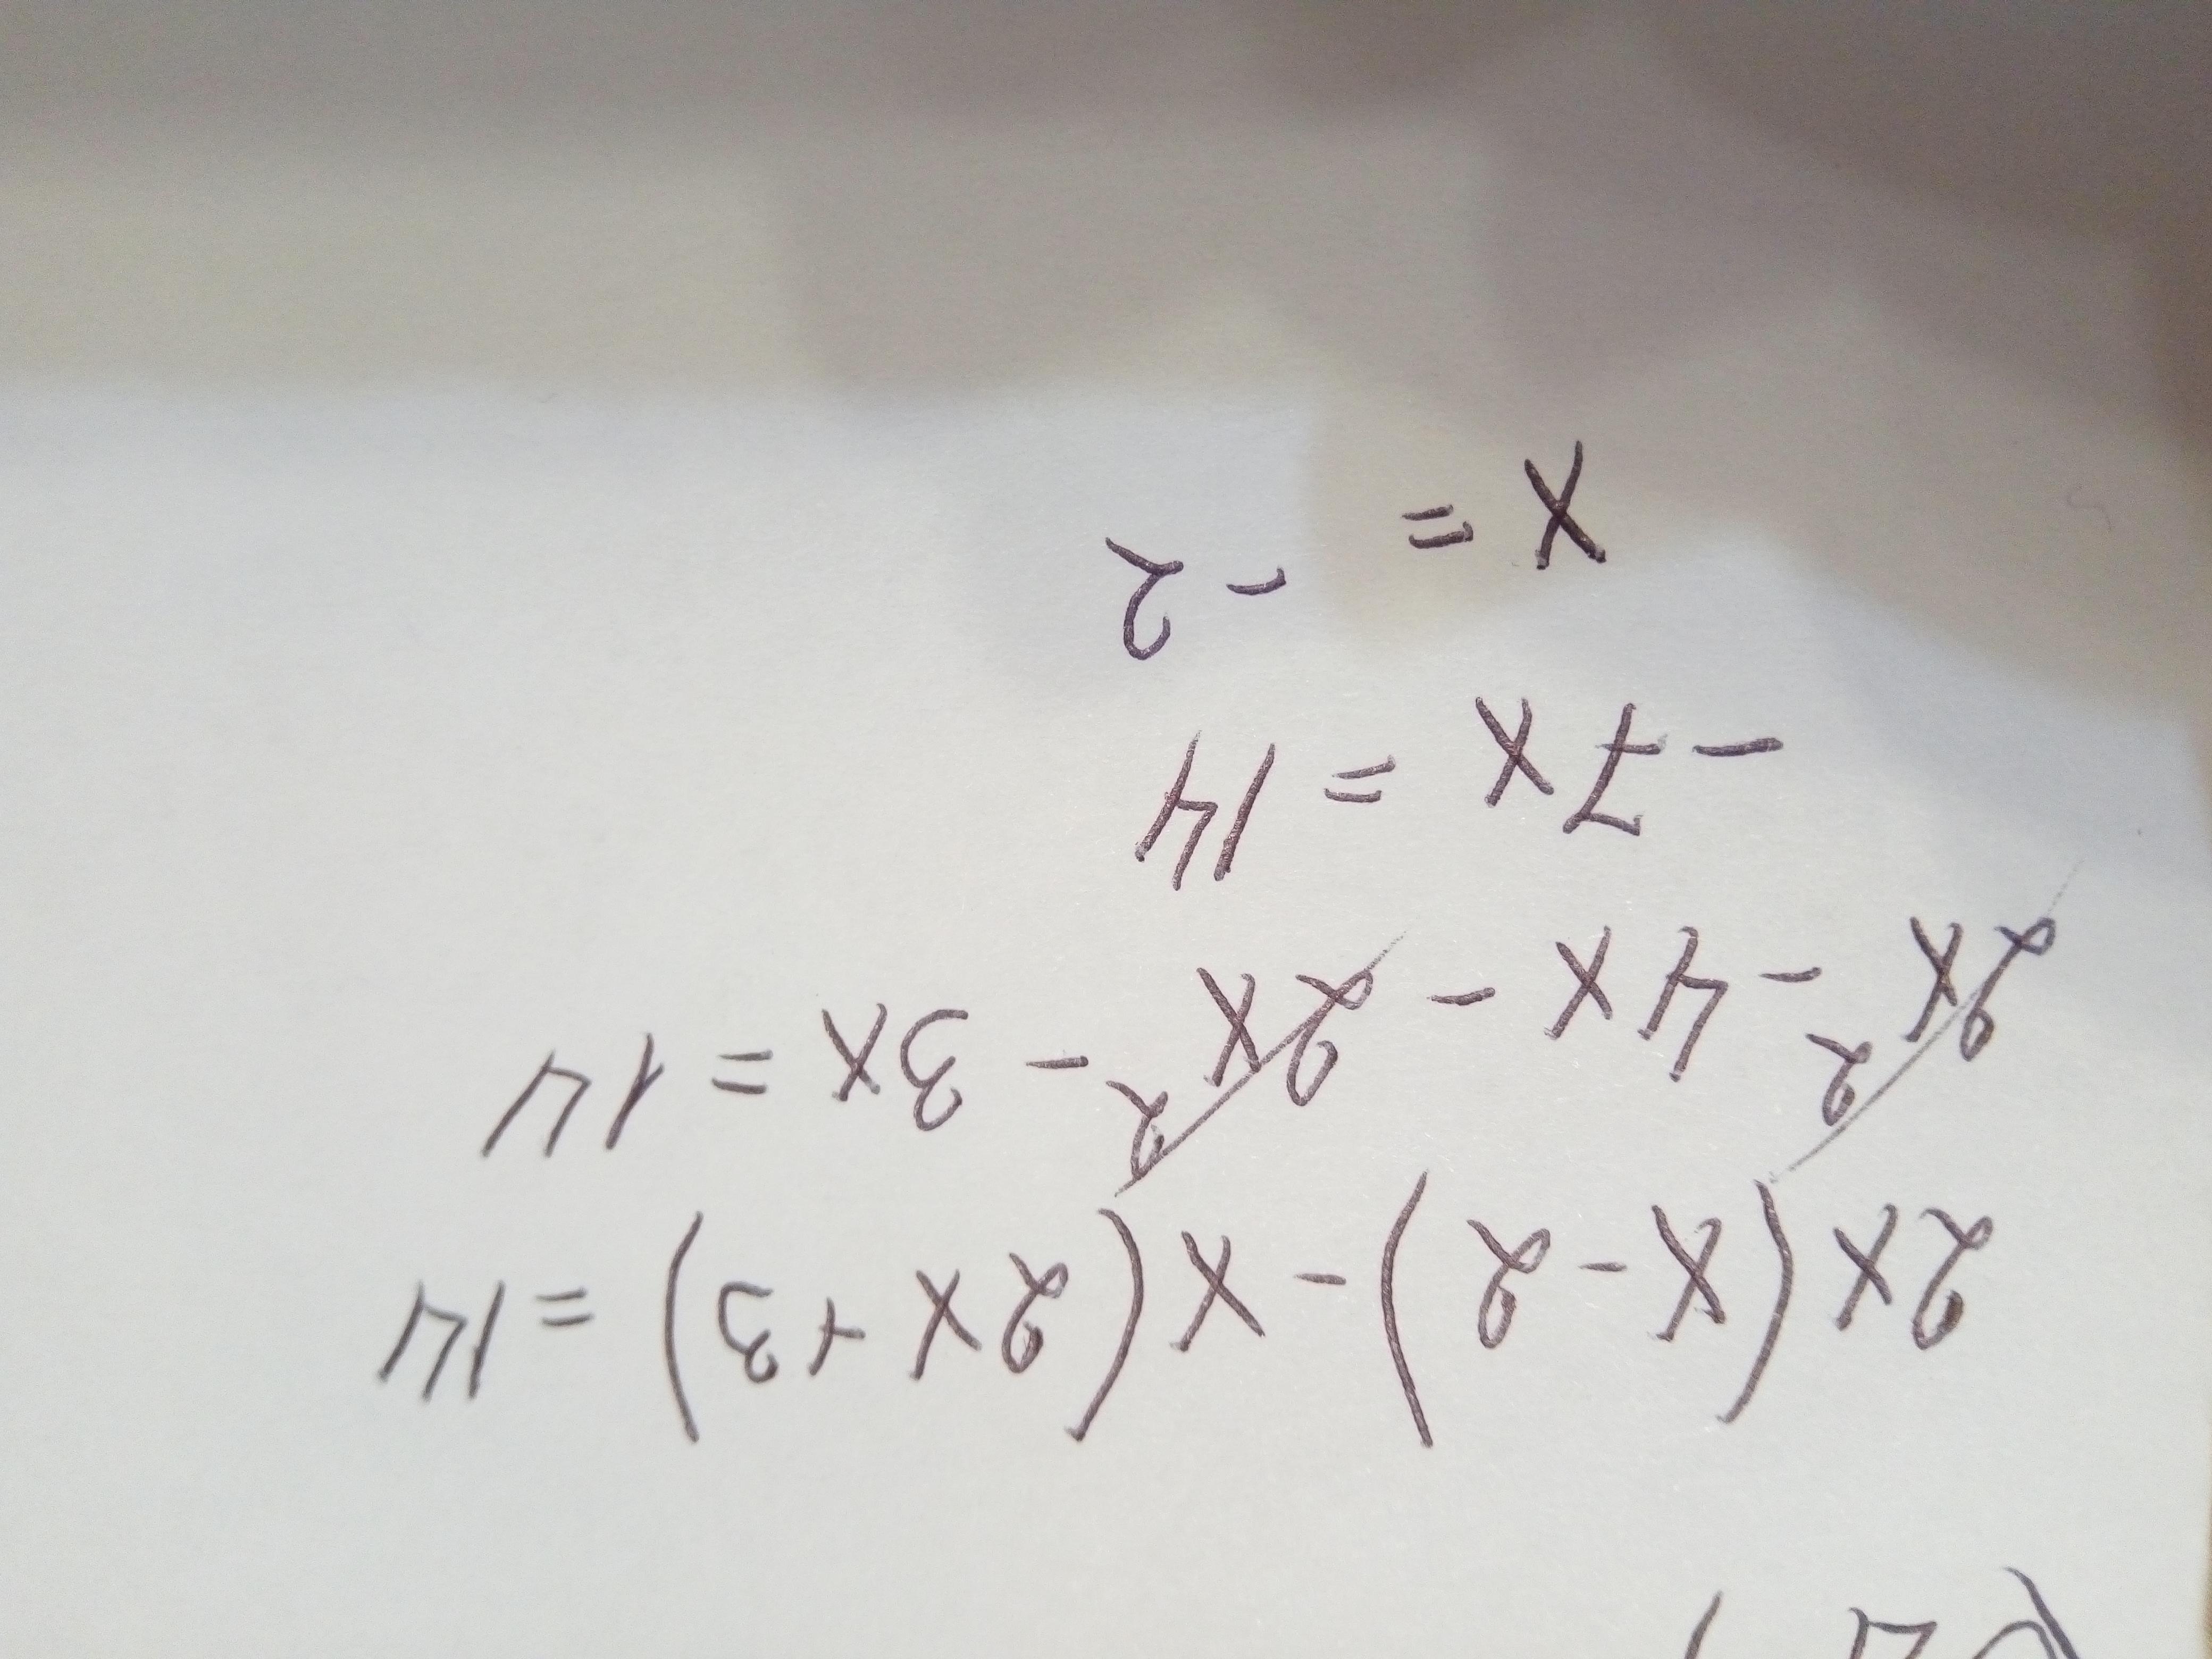 2x(x-2)-x(2x+3)=14
2x²-4x-2x²-3x=14
-7x=14
x=-2